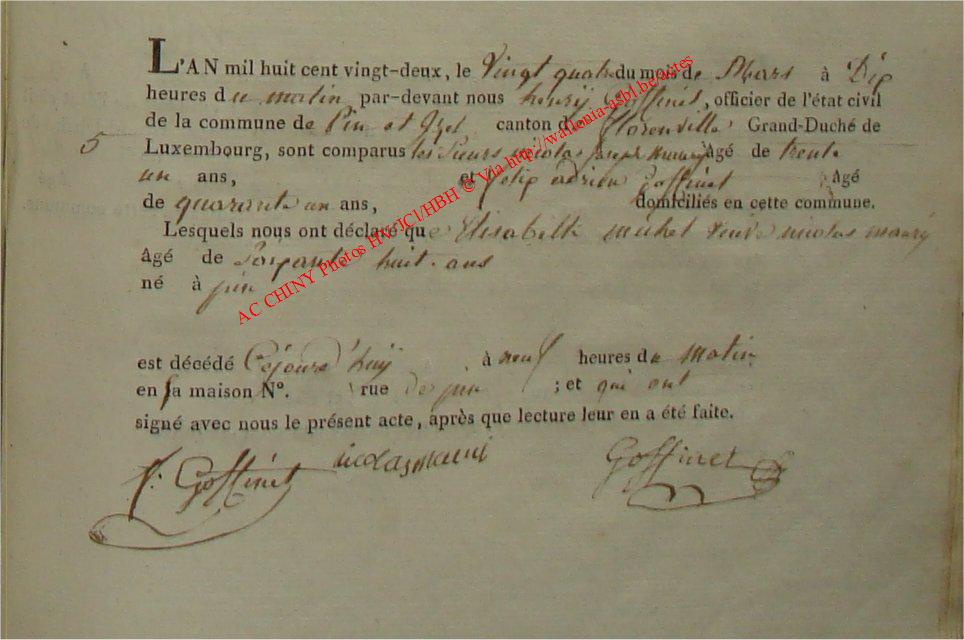 L'AN mil huit cent vingt-deux, le Vingt quatre du mois de Mars à Dix
heures du matin par-devant nous henrij Goffinet, officier de l'état civil
de la commune de Pin et Izel, canton de Florenville Grand-Duché de
5 Luxembourg, sont comparus les sieurs nicolas joseph Âgé de trente
un ans, et felix adrien Goffinet Âgé
de quarante un ans, domiciliés en cette commune.
Lesquels nous ont déclaré que Elisabette michel veuve nicolas
Âgé de Soixante huit ans
né à pin
est décédé Cejourd'huij à neuf heures du Matin
en sa maison N°. rue de pin ; et qui ont
signé avec nous le présent acte, après que lecture leur en a été faite.
f. Goffinet nicolas Goffinet
AC CHINY Photos HW/JCl/HBH © Via http://wallonia-asbl.be/actes